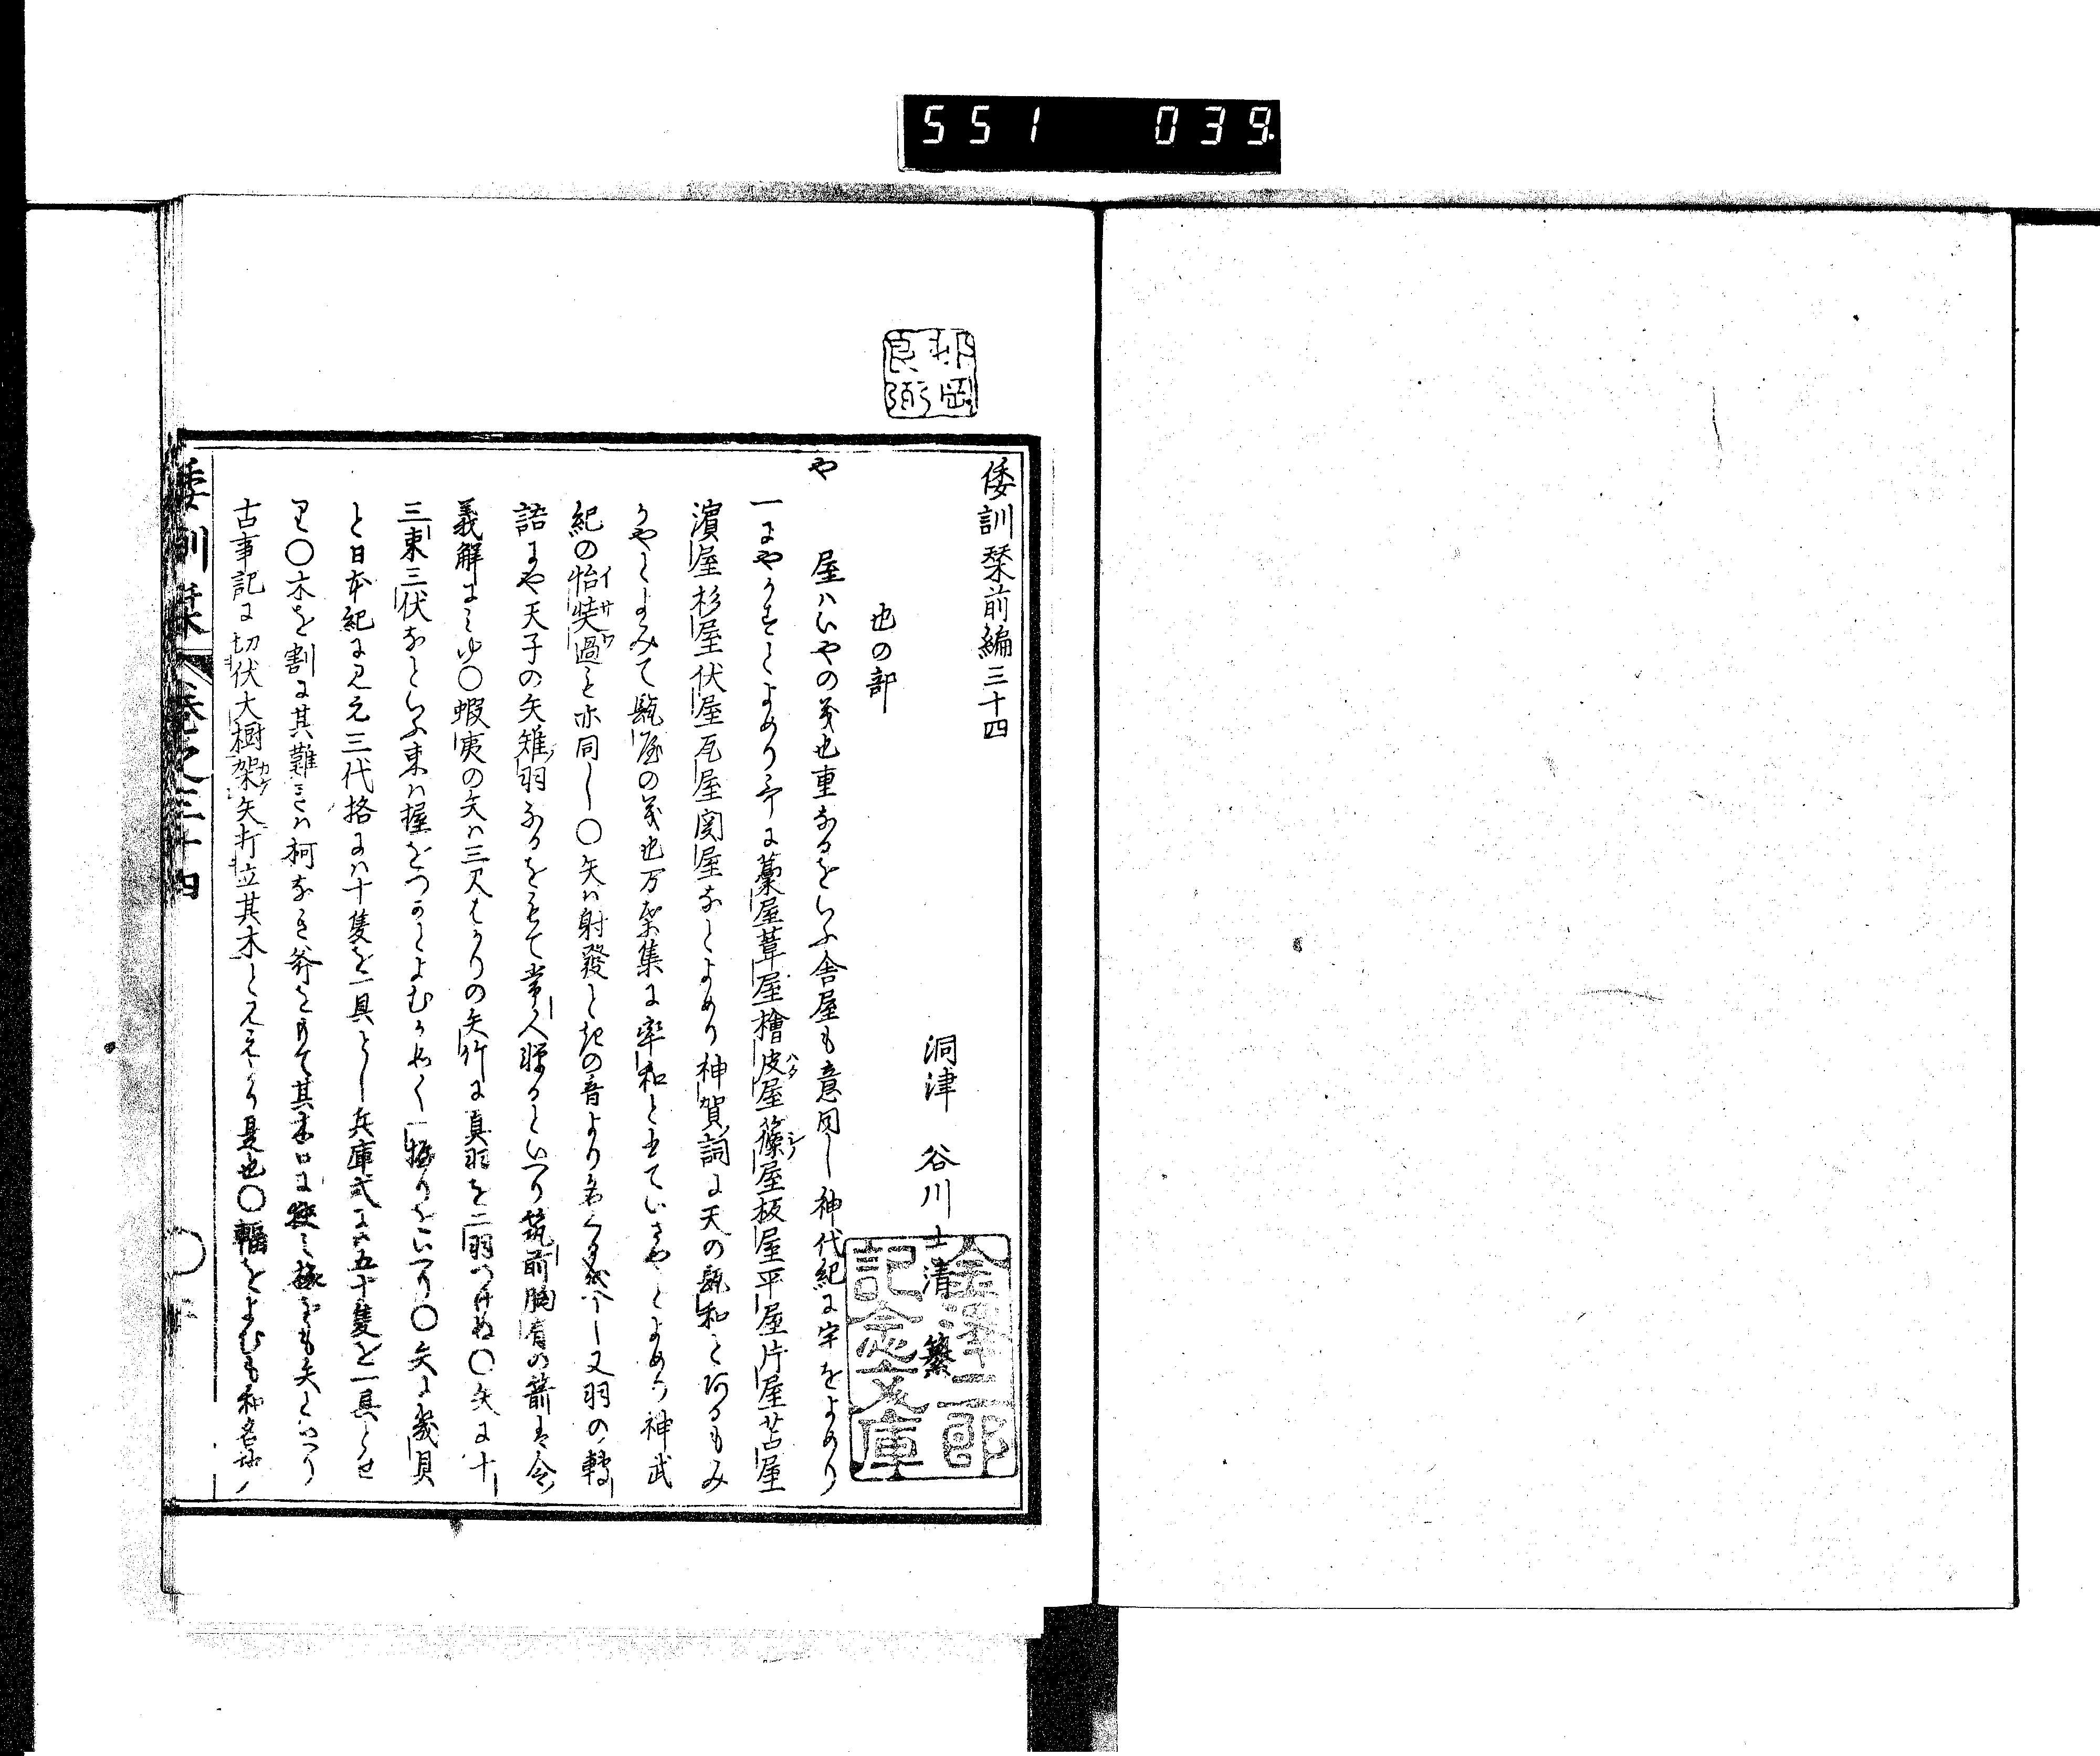 551 039
倭訓栞前編三十四
洞津 谷川士清 纂
也の部
や
屋ハいやの義也重なるをいふ舎屋も意同し神代紀に宇をよめり
一にやかすとよめり歌に藁屋葦屋檜皮屋篠屋板屋平屋片屋苫屋
濱屋杉屋伏屋瓦屋関屋なとよめり神賀詞に天の𤭖和とあるもみ
かやとよみて𤭖屋の義也万葉集に率和と書ていさやとよめり神武
紀の怡奘過と亦同し〇矢ハ射發と
の音より名くる成へし又羽の轉
語にや天子の矢雉羽なるをもて常人
るといへり筑前胸肩の箭は令
義解にみゆ〇蝦夷の矢ハ三尺はかりの矢竹に真羽を二羽つけぬ〇矢に十
三束三伏なといふ束ハ握をつかとよむか如く一握りをいへり〇矢に幾具
と日本紀に見え三代格にハ十隻を一具とし兵庫式にハ五十隻を一具とせ
り〇木を割に其難きハ柯なき斧をもて其木口に
をも矢といへり
古事記に切伏大樹架矢打立其木とみえたり是也〇輻をよむも和名抄ノ
倭訓栞 卷之三十四
金澤二郎
記念文庫
良弼